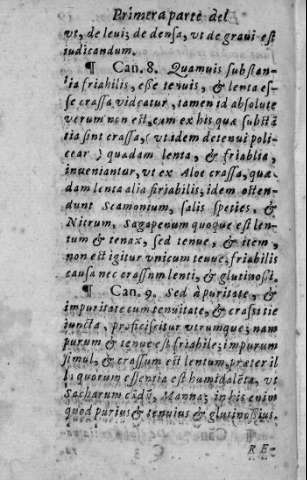 Primera parte del
vt, de leui; de densa, vt de graui est
iudicandum.
¶ Can. 8. Quamuis substan-
tia friabilis, esse tenuis, & lenta es-
se crassa videatur, tamen id absolute
verum non est, cum ex his quæ substãtia
tia sint crassa, ( vt idem de tenui poli-
cear ) quædam lenta, & friablia,
inueniantur, vt ex Aloe crassa, quæ
dam lenta alia firiabilis; idem osten-
dunt Scamonium, salis species, &
Nitrum, Sagapenum quoque est len-
tum & tenax, sed tenue, & item,
non est igitur vnicum tenue, friabilis
causa nec crassum lenti, & glutinosi.
¶ Can. 9. Sed à puritate, &
impuritate cum tenuitate, & crassitie
iuncta, proficiscitur vtrumque; nam
purum & tenue est friabile; impurum
simul, & crassum est lentum, præter il
la quorum essentia est humida lẽta, vt
Sacharum cãdũ, Manna; in his enim
quod purius & tenuius & glutinosius.
RE-